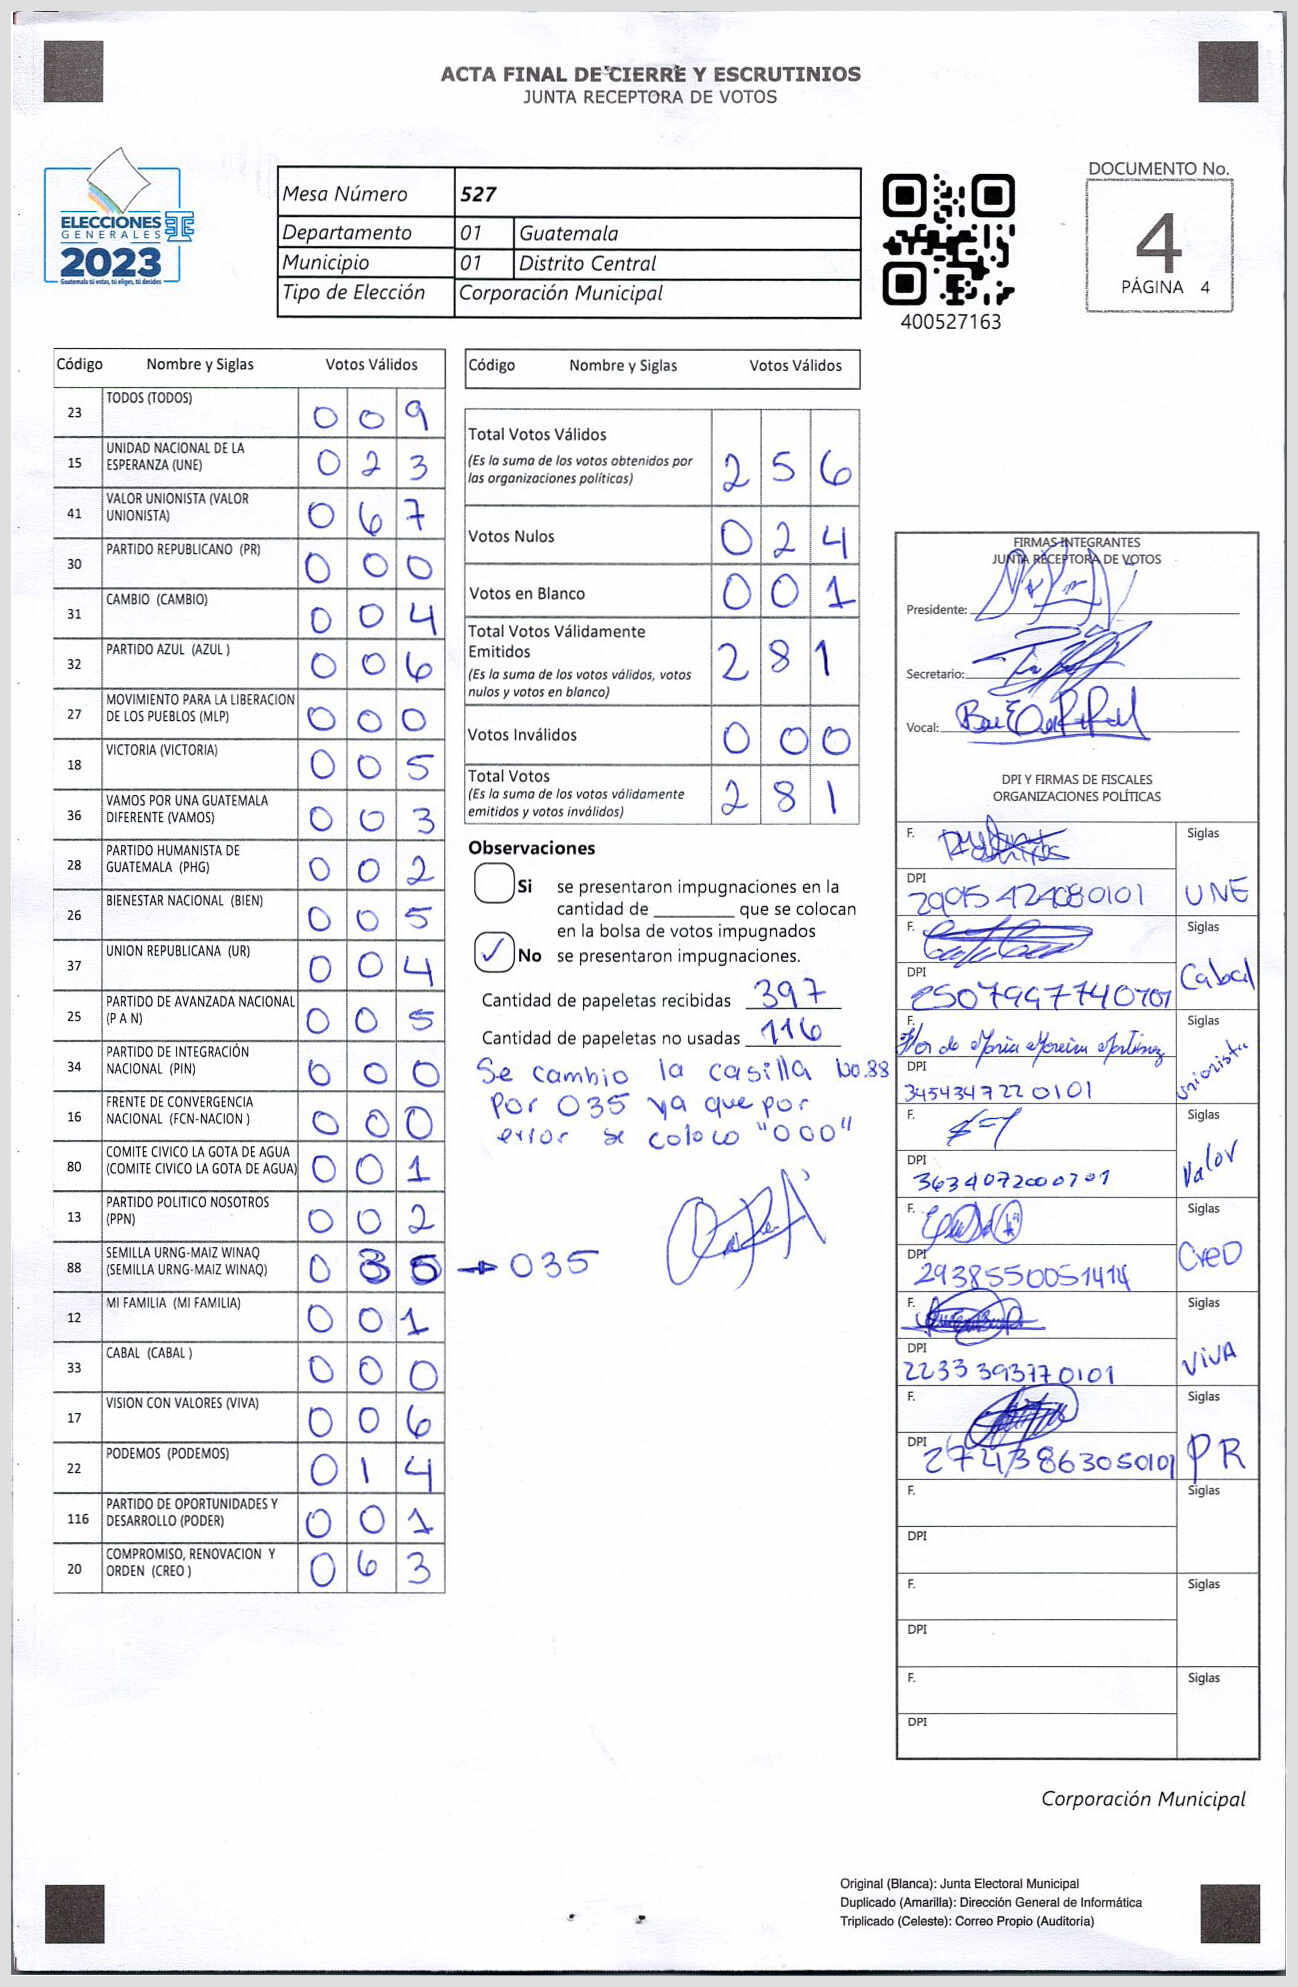 ACTA FINAL DE CIERRE Y ESCRUTINIOS
JUNTA RECEPTORA DE VOTOS
ELECCIONES
GENERALES
2023
Guatemala tú estas, tú eliges, tú decides
Mesa Número 527
Departamento 01 Guatemala
Municipio 01 Distrito Central
Tipo de Elección Corporación Municipal
400527163
DOCUMENTO No.
4
PÁGINA 4
Código Nombre y Siglas Votos Válidos
23 TODOS (TODOS) 0 0 9
15 UNIDAD NACIONAL DE LA ESPERANZA (UNE) 0 2 3
41 VALOR UNIONISTA (VALOR UNIONISTA) 0 6 7
30 PARTIDO REPUBLICANO (PR) 0 0 0
31 CAMBIO (CAMBIO) 0 0 4
32 PARTIDO AZUL (AZUL ) 0 0 6
27 MOVIMIENTO PARA LA LIBERACION DE LOS PUEBLOS (MLP) 0 0 0
18 VICTORIA (VICTORIA) 0 0 5
36 VAMOS POR UNA GUATEMALA DIFERENTE (VAMOS) 0 0 3
28 PARTIDO HUMANISTA DE GUATEMALA (PHG) 0 0 2
26 BIENESTAR NACIONAL (BIEN) 0 0 5
37 UNION REPUBLICANA (UR) 0 0 4
25 PARTIDO DE AVANZADA NACIONAL (P A N) 0 0 5
34 PARTIDO DE INTEGRACIÓN NACIONAL (PIN) 0 0 0
16 FRENTE DE CONVERGENCIA NACIONAL (FCN-NACION ) 0 0 0
80 COMITE CIVICO LA GOTA DE AGUA (COMITE CIVICO LA GOTA DE AGUA) 0 0 1
13 PARTIDO POLITICO NOSOTROS (PPN) 0 0 2
88 SEMILLA URNG-MAIZ WINAQ (SEMILLA URNG-MAIZ WINAQ) 0 3 5 → 035
12 MI FAMILIA (MI FAMILIA) 0 0 1
33 CABAL (CABAL ) 0 0 0
17 VISION CON VALORES (VIVA) 0 0 6
22 PODEMOS (PODEMOS) 0 1 4
116 PARTIDO DE OPORTUNIDADES Y DESARROLLO (PODER) 0 0 1
20 COMPROMISO, RENOVACION Y ORDEN (CREO ) 0 6 3
Código Nombre y Siglas Votos Válidos
Total Votos Válidos 2 5 6
(Es la suma de los votos obtenidos por
las organizaciones políticas)
Votos Nulos 0 2 4
Votos en Blanco 0 0 1
Total Votos Válidamente
Emitidos 2 8 1
(Es la suma de los votos válidos, votos
nulos y votos en blanco)
Votos Inválidos 0 0 0
Total Votos 2 8 1
(Es la suma de los votos válidamente
emitidos y votos inválidos)
Observaciones
Si se presentaron impugnaciones en la
cantidad de ________ que se colocan
en la bolsa de votos impugnados
✓ No se presentaron impugnaciones.
Cantidad de papeletas recibidas 397
Cantidad de papeletas no usadas 116
Se cambio la casilla No.88
Por 035 ya que por
error se coloco "000"
FIRMAS INTEGRANTES
JUNTA RECEPTORA DE VOTOS
Presidente:
Secretario:
Vocal:
DPI Y FIRMAS DE FISCALES
ORGANIZACIONES POLÍTICAS
F. Siglas
DPI UNE
F. Siglas
DPI Cabal
2507997740707
F. Flor de Maria Moreira Martinez Siglas
DPI unionista
3454347220101
F. Siglas
DPI Valor
3634072000701
F. Siglas
DPI CreO
2938550051414
F. Siglas
DPI ViVA
2233393770101
F. Siglas
DPI PR
F. Siglas
DPI
F. Siglas
DPI
F. Siglas
DPI
Corporación Municipal
Original (Blanca): Junta Electoral Municipal
Duplicado (Amarilla): Dirección General de Informática
Triplicado (Celeste): Correo Propio (Auditoría)